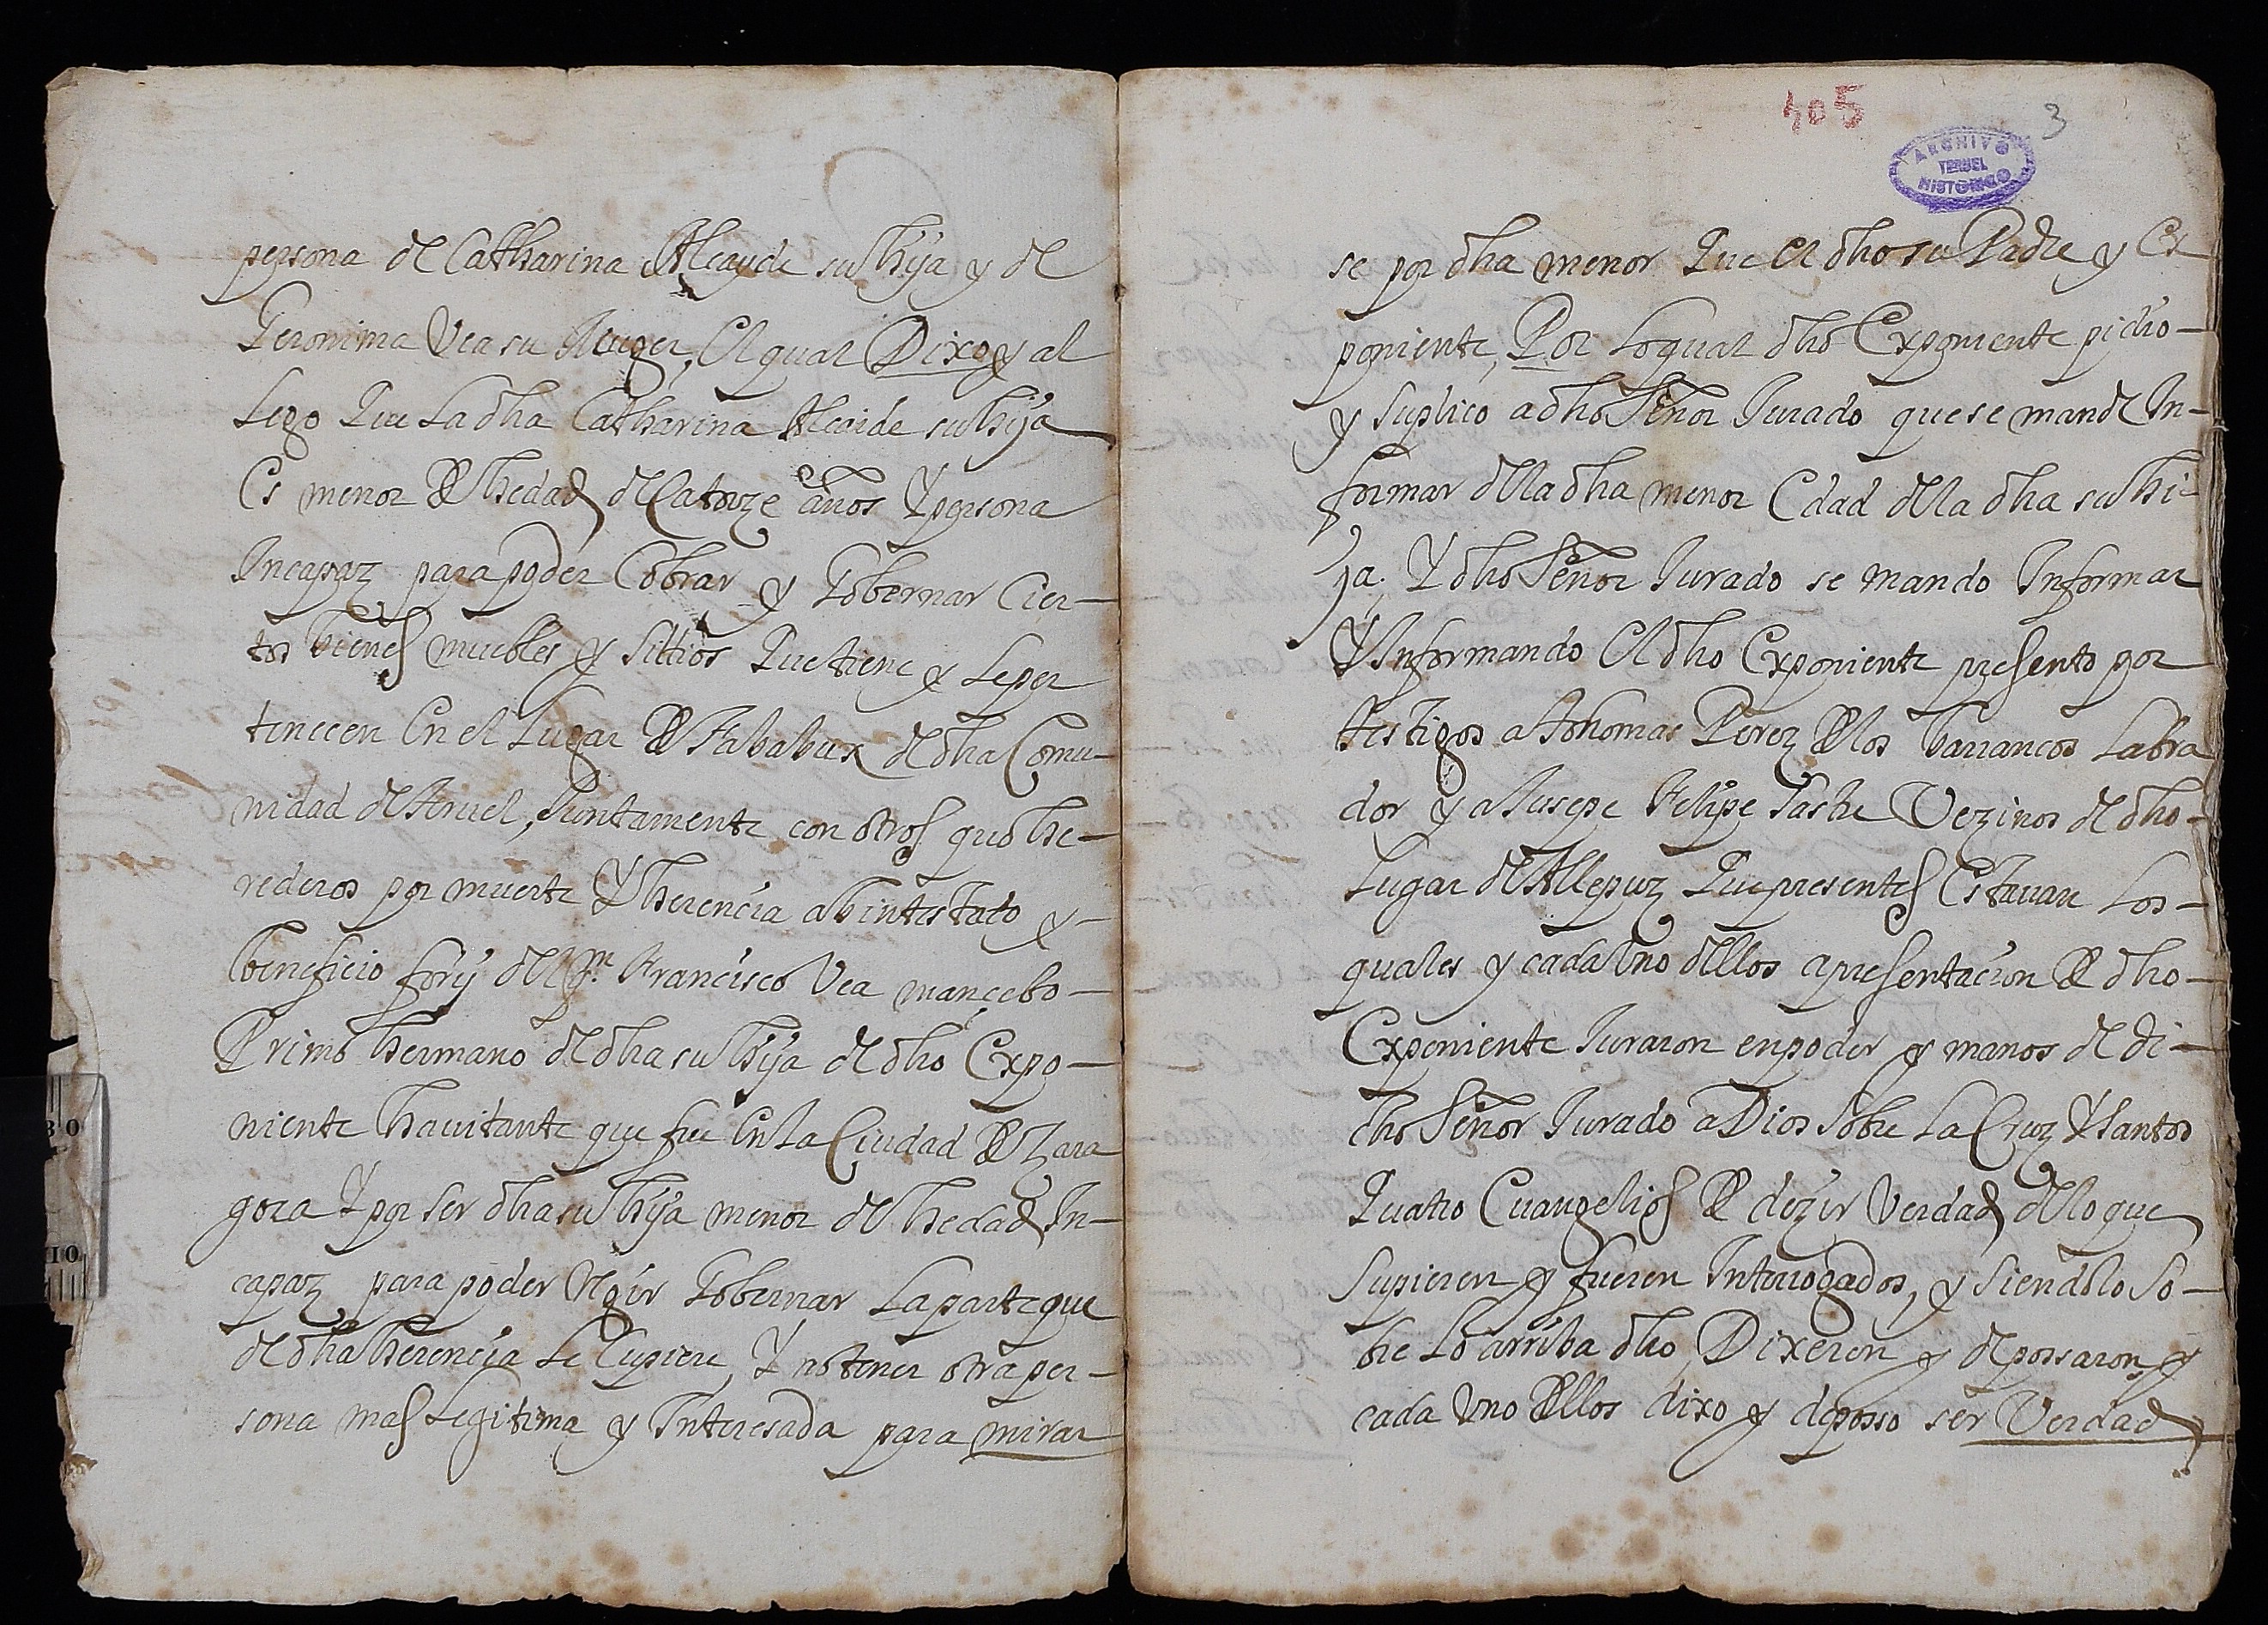 persona de Catharina Alcayde su hija y de
Geronima Vea su Muger, El qual Dixo y al
Lego Que La dha Catharina Alcaide su hija
Es menor de hedad de Catorze años Y persona
Incapaz para poder Cobrar y Gobernar Cier-
tos bienes muebles y Sittios Que tiene y Le per
tenecen En el Lugar de Jababux de dha Comu-
nidad de Teruel, Juntamente con otros quo he-
rederos por muerte Y herencia abintestato y-
beneficio forij del qm. Francisco Vea mancebo-
Primo hermano de dha su hija de dho Expo-
niente havitante que fue En La Ciudad de Zara
goza Y por ser dha su hija menor de hedad In-
capaz para poder Regir Gobernar La parte que
de dha herencia Le Cupiere, Y no tener otra per-
sona mas Legitima y Interesada para mirar
405 3
ARCHIVO
TERUEL
HISTORICO
se por dha menor Que El dho su Padre y Ex
poniente, Por Lo qual dho Exponiente pidio-
y suplico a dho Señor Jurado que se mande In-
formar de la dha menor Edad de la dha su hi-
ja. Y dho Señor Jurado se mando Informar
Y Informando El dho Exponiente presento por
testigos a Thomas Perez de los barrancos Labra
dor y a Jusepe Felipe Sastre Vezinos de dho-
Lugar de Allepuz Que presentes Estavan Los-
quales y cada Uno dellos a presentacion de dho-
Exponiente Juraron en poder y manos de di-
cho Señor Jurado a Dios Sobre La Cruz Y Santos
Quatro Evangelios de dezir Verdad de lo que
Supieren y fueren Interrogados, y Siendolo So-
bre Lo arriba dho Dixeron y depossaron y
cada Uno dellos dixo y deposso ser Verdad